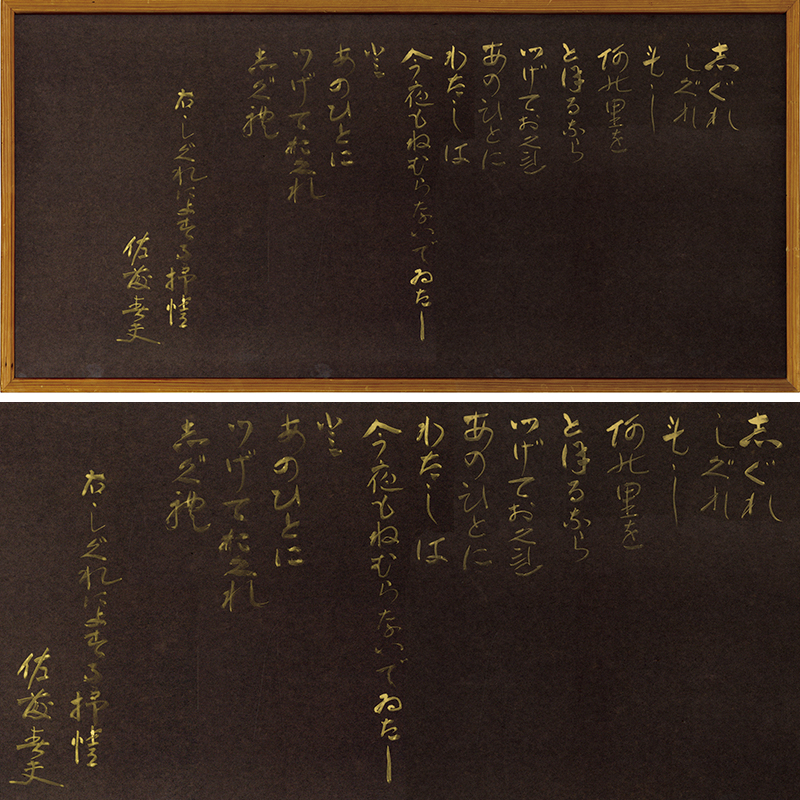 しぐれ
しぐれ
もし
阿の里を
とほるなら
つげておくれ
あのひとに
わたしは
今夜もねむらないでゐた
あのひとに
つげておくれ
しぐれ
右しぐれによする抒情
佐藤春夫
しぐれ
しぐれ
もし
阿の里を
とほるなら
つげておくれ
あのひとに
わたしは
今夜もねむらないでゐた
あのひとに
つげておくれ
しぐれ
右しぐれによする抒情
佐藤春夫